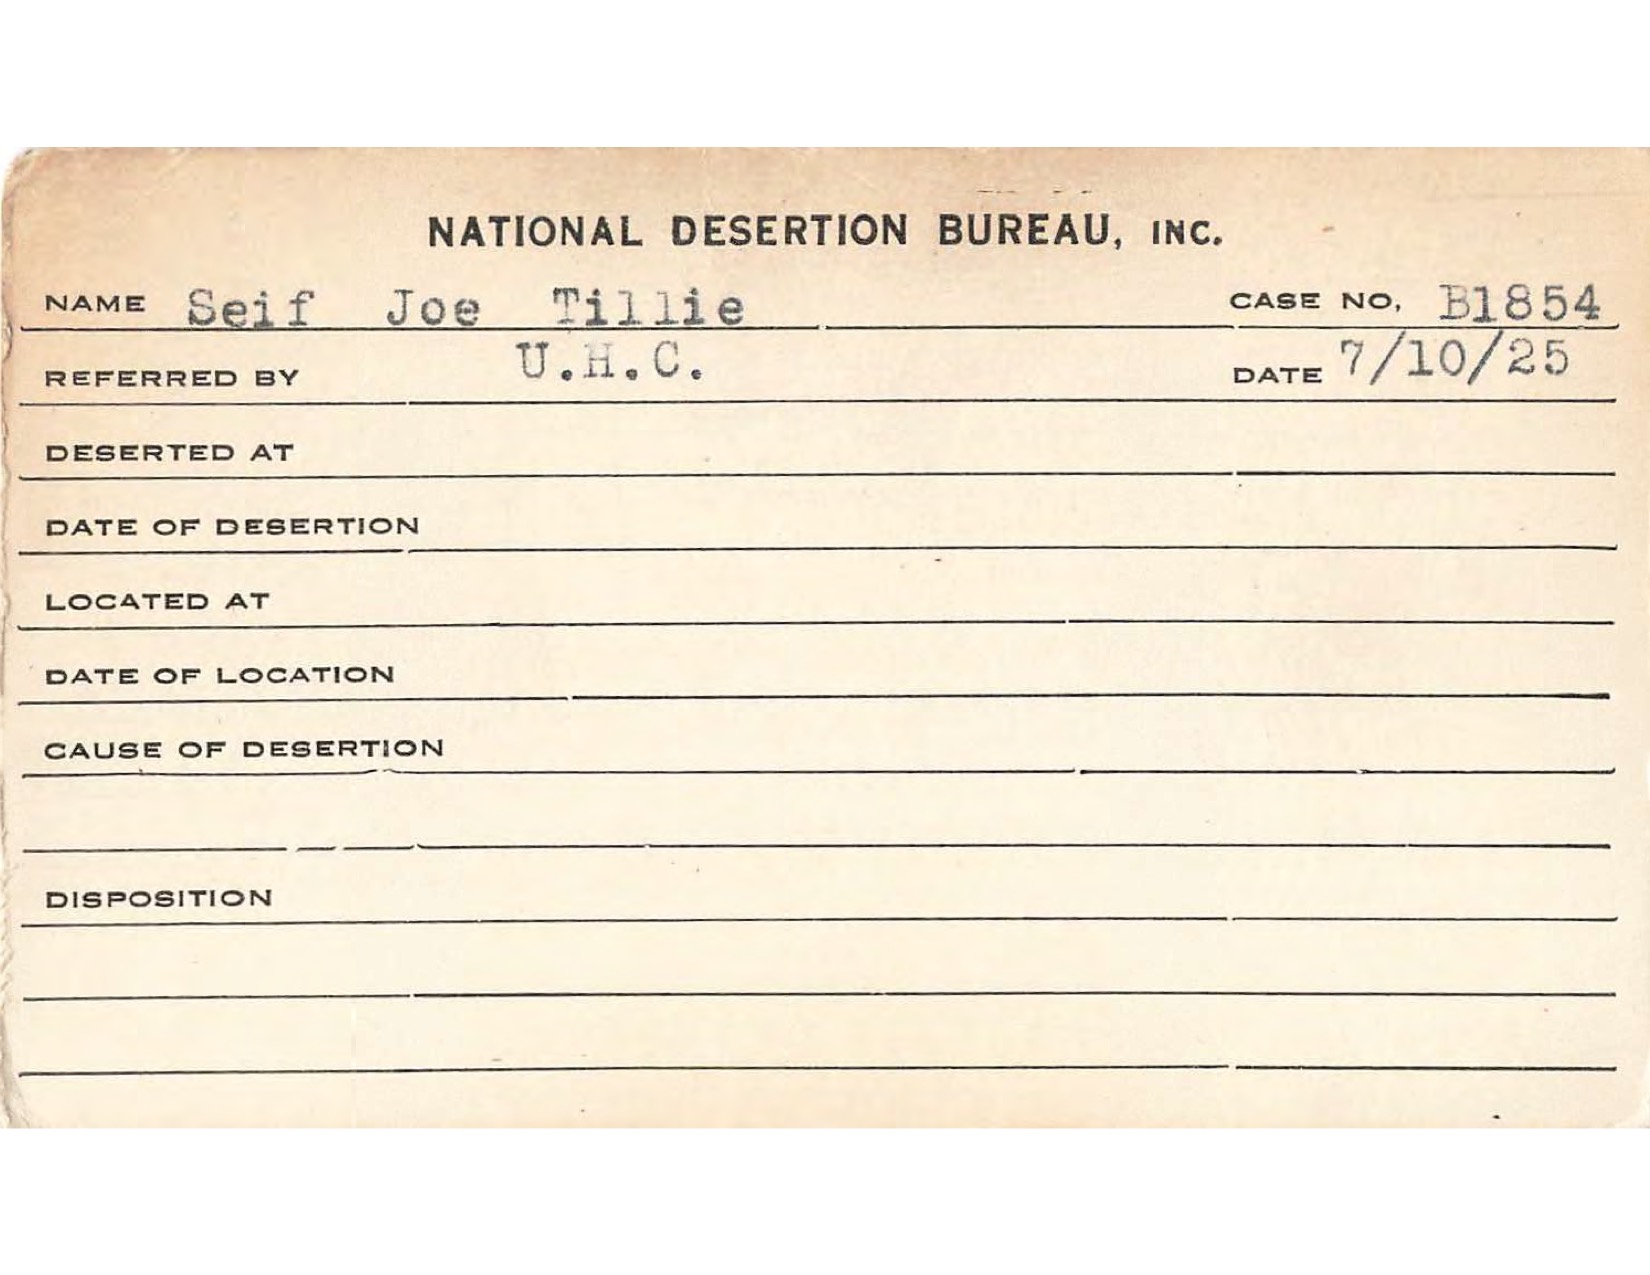 NATIONAL DESERTION BUREAU, INC.
NAME Seif Joe Tillie CASE NO, B1854
REFERRED BY U.H.C. DATE 7/10/25
DESERTED AT
DATE OF DESERTION
LOCATED AT
DATE OF LOCATION
CAUSE OF DESERTION
DISPOSITION